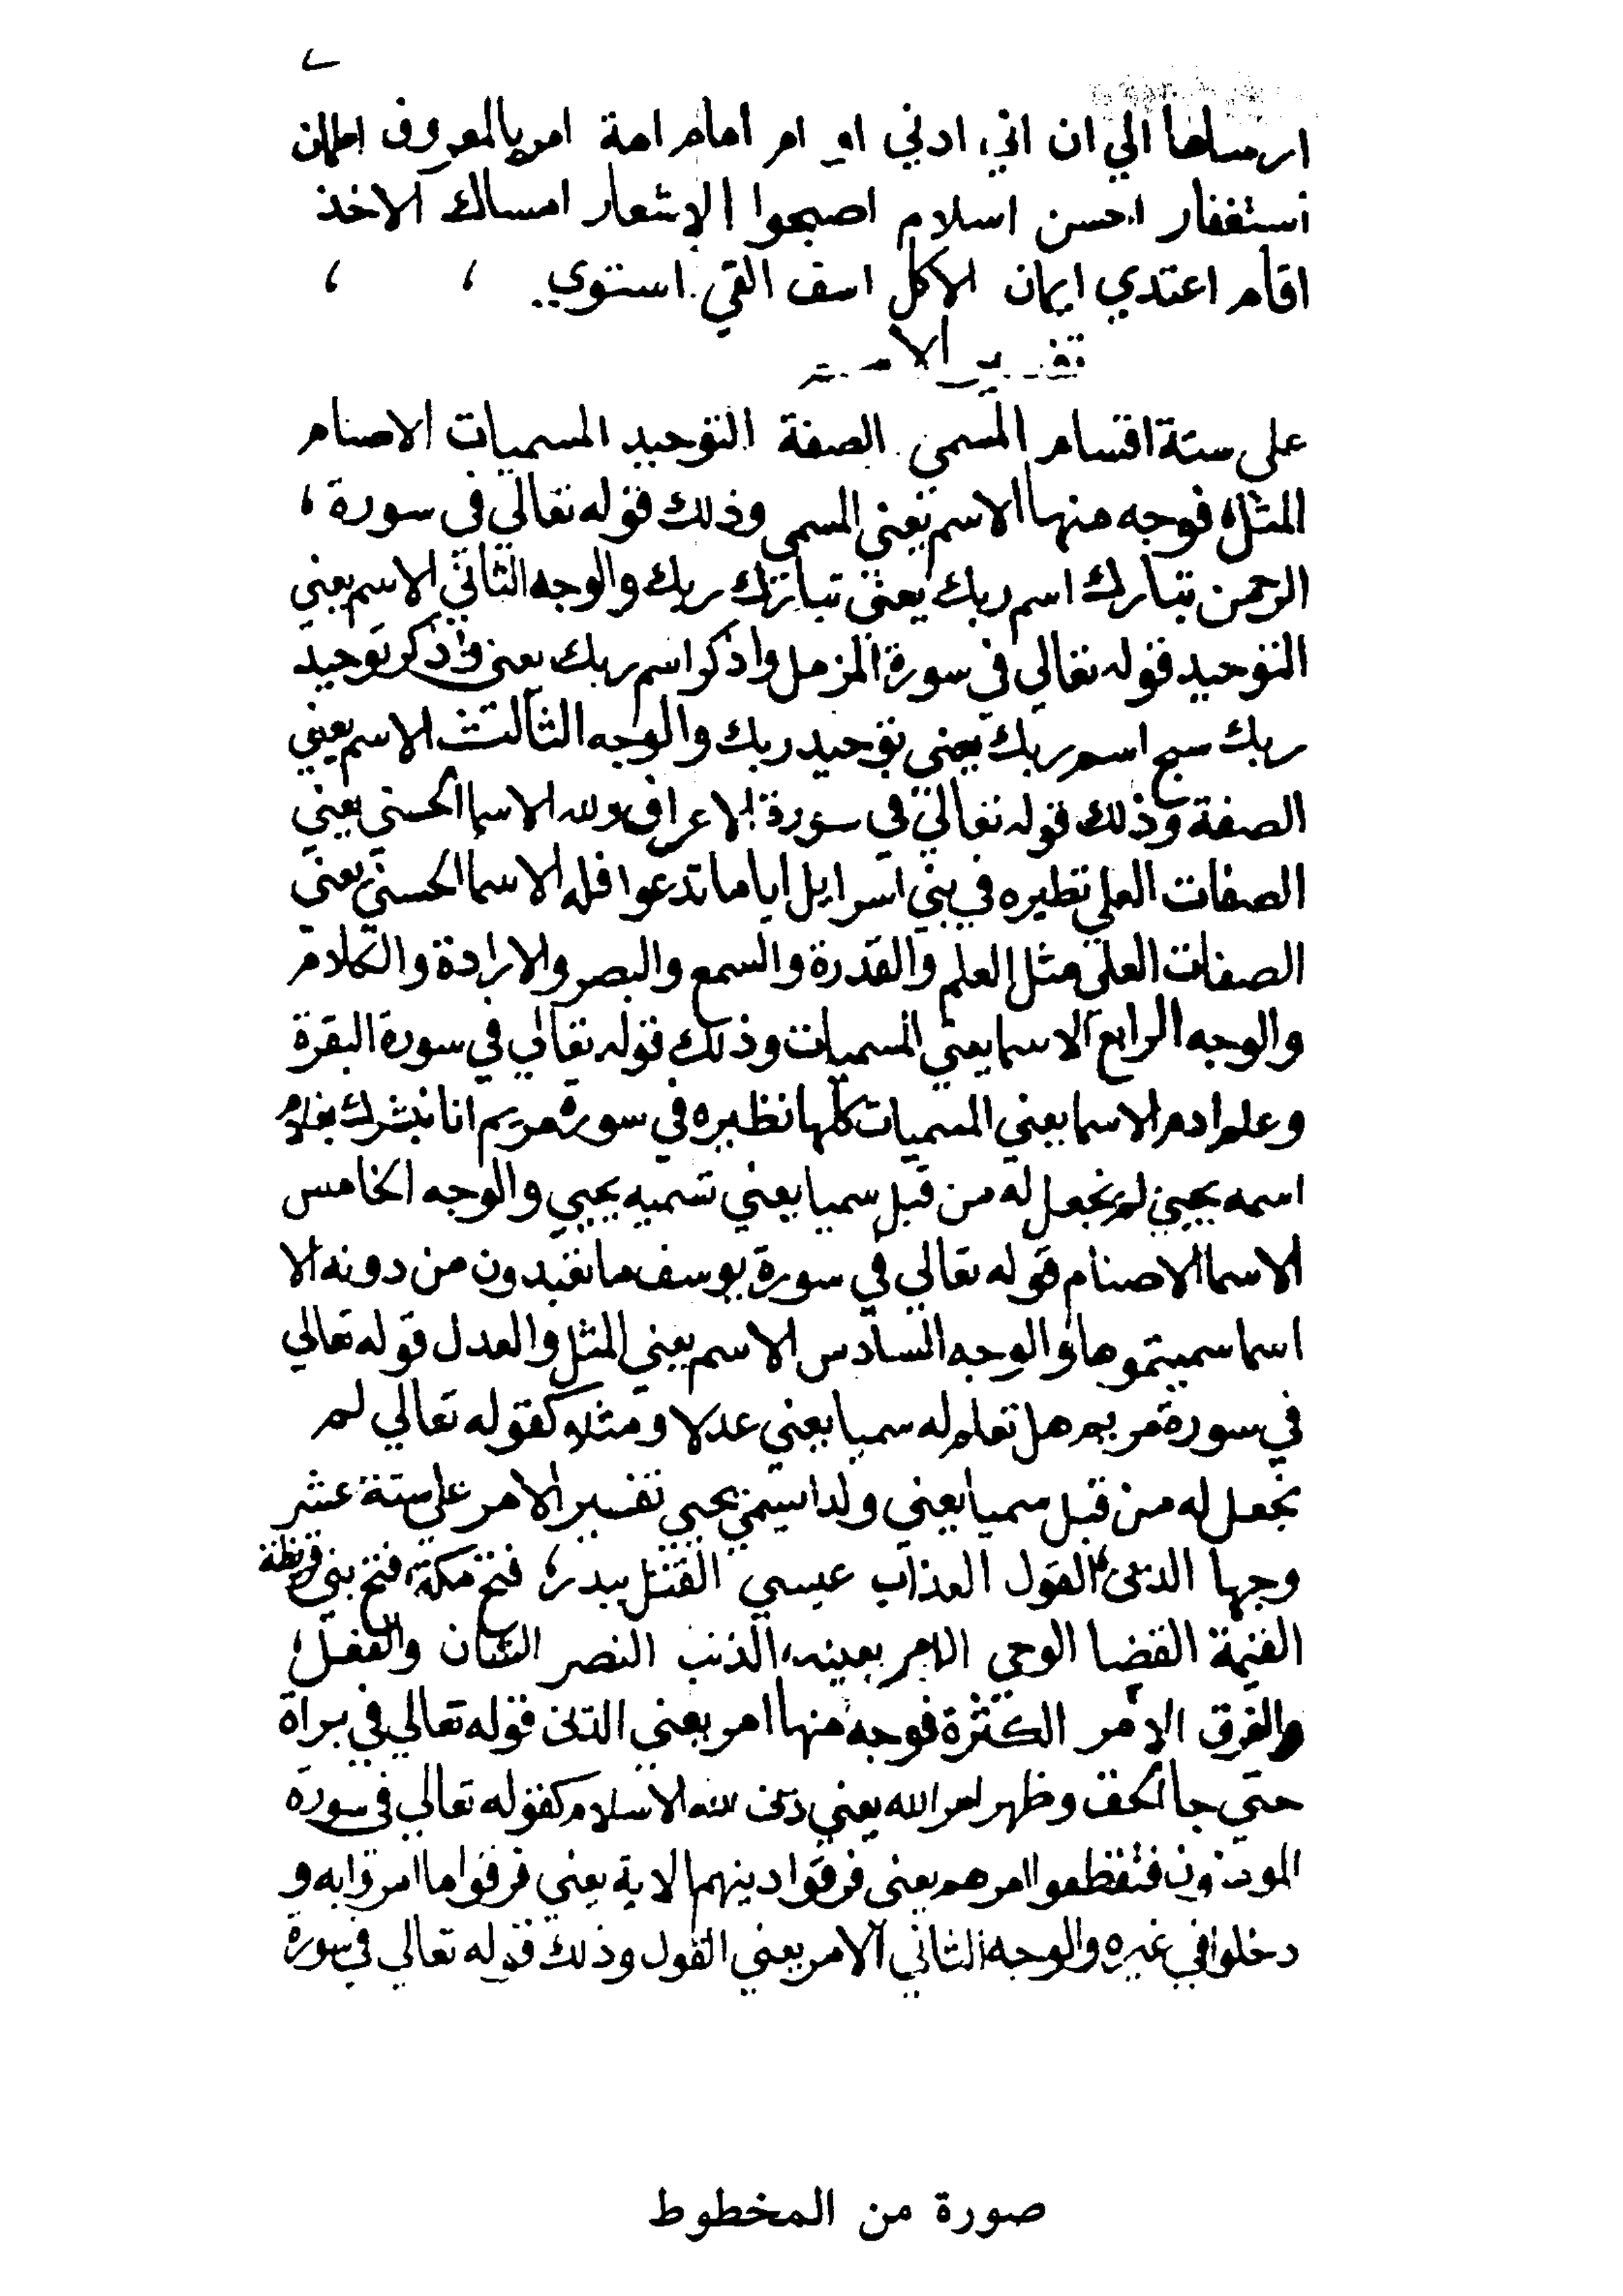 ارسلها الي ان اني ادني او ام امام امة امر بالمعروف
استغفار احسن اسلام اصبحوا الاشعار امساك الاخذ
اقام اعتدي ايمان الاكل اسف القي استوي
تفسير الاسم
علي ستة اقسام المسمي الصفة التوحيد المسميات الاصنام
المثل فوجه منها الاسم يعني المسمي وذلك قوله تعالي في سورة
الرحمن تبارك اسم ربك يعني تبارك ربك والوجه الثاني الاسم يعني
التوحيد قوله تعالي في سورة المزمل واذكر اسم ربك يعني واذكر توحيد
ربك سبح اسم ربك يعني توحيد ربك والوجه الثالث الاسم يعني
الصفة وذلك قوله تعالي في سورة الاعراف ولله الاسما الحسني يعني
الصفات العلي نظيره في بني اسرايل اياما تدعوا فله الاسما الحسني يعني
الصفات العلي مثل العلم والقدرة والسمع والبصر والارادة والكلام
والوجه الرابع الاسما يعني المسميات وذلك قوله تعالي في سورة البقرة
وعلم ادم الاسما يعني المسميات كلها نظيره في سورة مريم انا نبشرك بغلام
اسمه يحيي لم نجعل له من قبل سميا يعني تسميه يحيي والوجه الخامس
الاسما الاصنام قوله تعالي في سورة يوسف ما تعبدون من دونه الا
اسما سميتموها والوجه السادس الاسم يعني المثل والعدل قوله تعالي
في سورة مريم هل تعلم له سميا يعني عدلا ومثلا كقوله تعالي لم
نجعل له من قبل سميا يعني ولدا يسمي يحيي تفسير الامر علي ستة عشر
وجها الدين القول العذاب عيسي القتل ببدر فتح مكة فتح بني قريظة
القيمة القضا الوحي الامر بعينه الذنب النصر الشان والفعل
والغرق الامر الكثرة فوجه منها امر يعني الدين قوله تعالي في براة
حتي جا الحق وظهر امر الله يعني دين الله الاسلام كقوله تعالي في سورة
المومنون فتقطعوا امرهم يعني فرقوا دينهم الاية يعني فرقوا ما امروا به و
دخلوا في غيره والوجه الثاني الامر يعني القول وذلك قوله تعالي في سورة
صورة من المخطوط